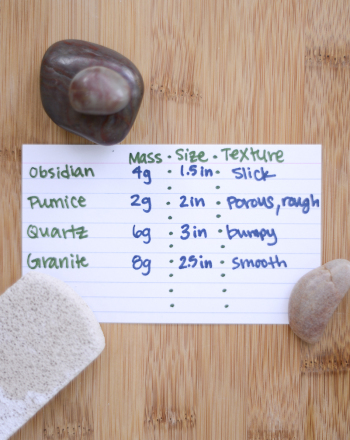 Mass · Size · Texture
Obsidian 4g · 1.5in · Slick
Pumice 2g · 2in · Porous, rough
Quartz 6g · 3in · bumpy
Granite 8g · 2.5in · smooth